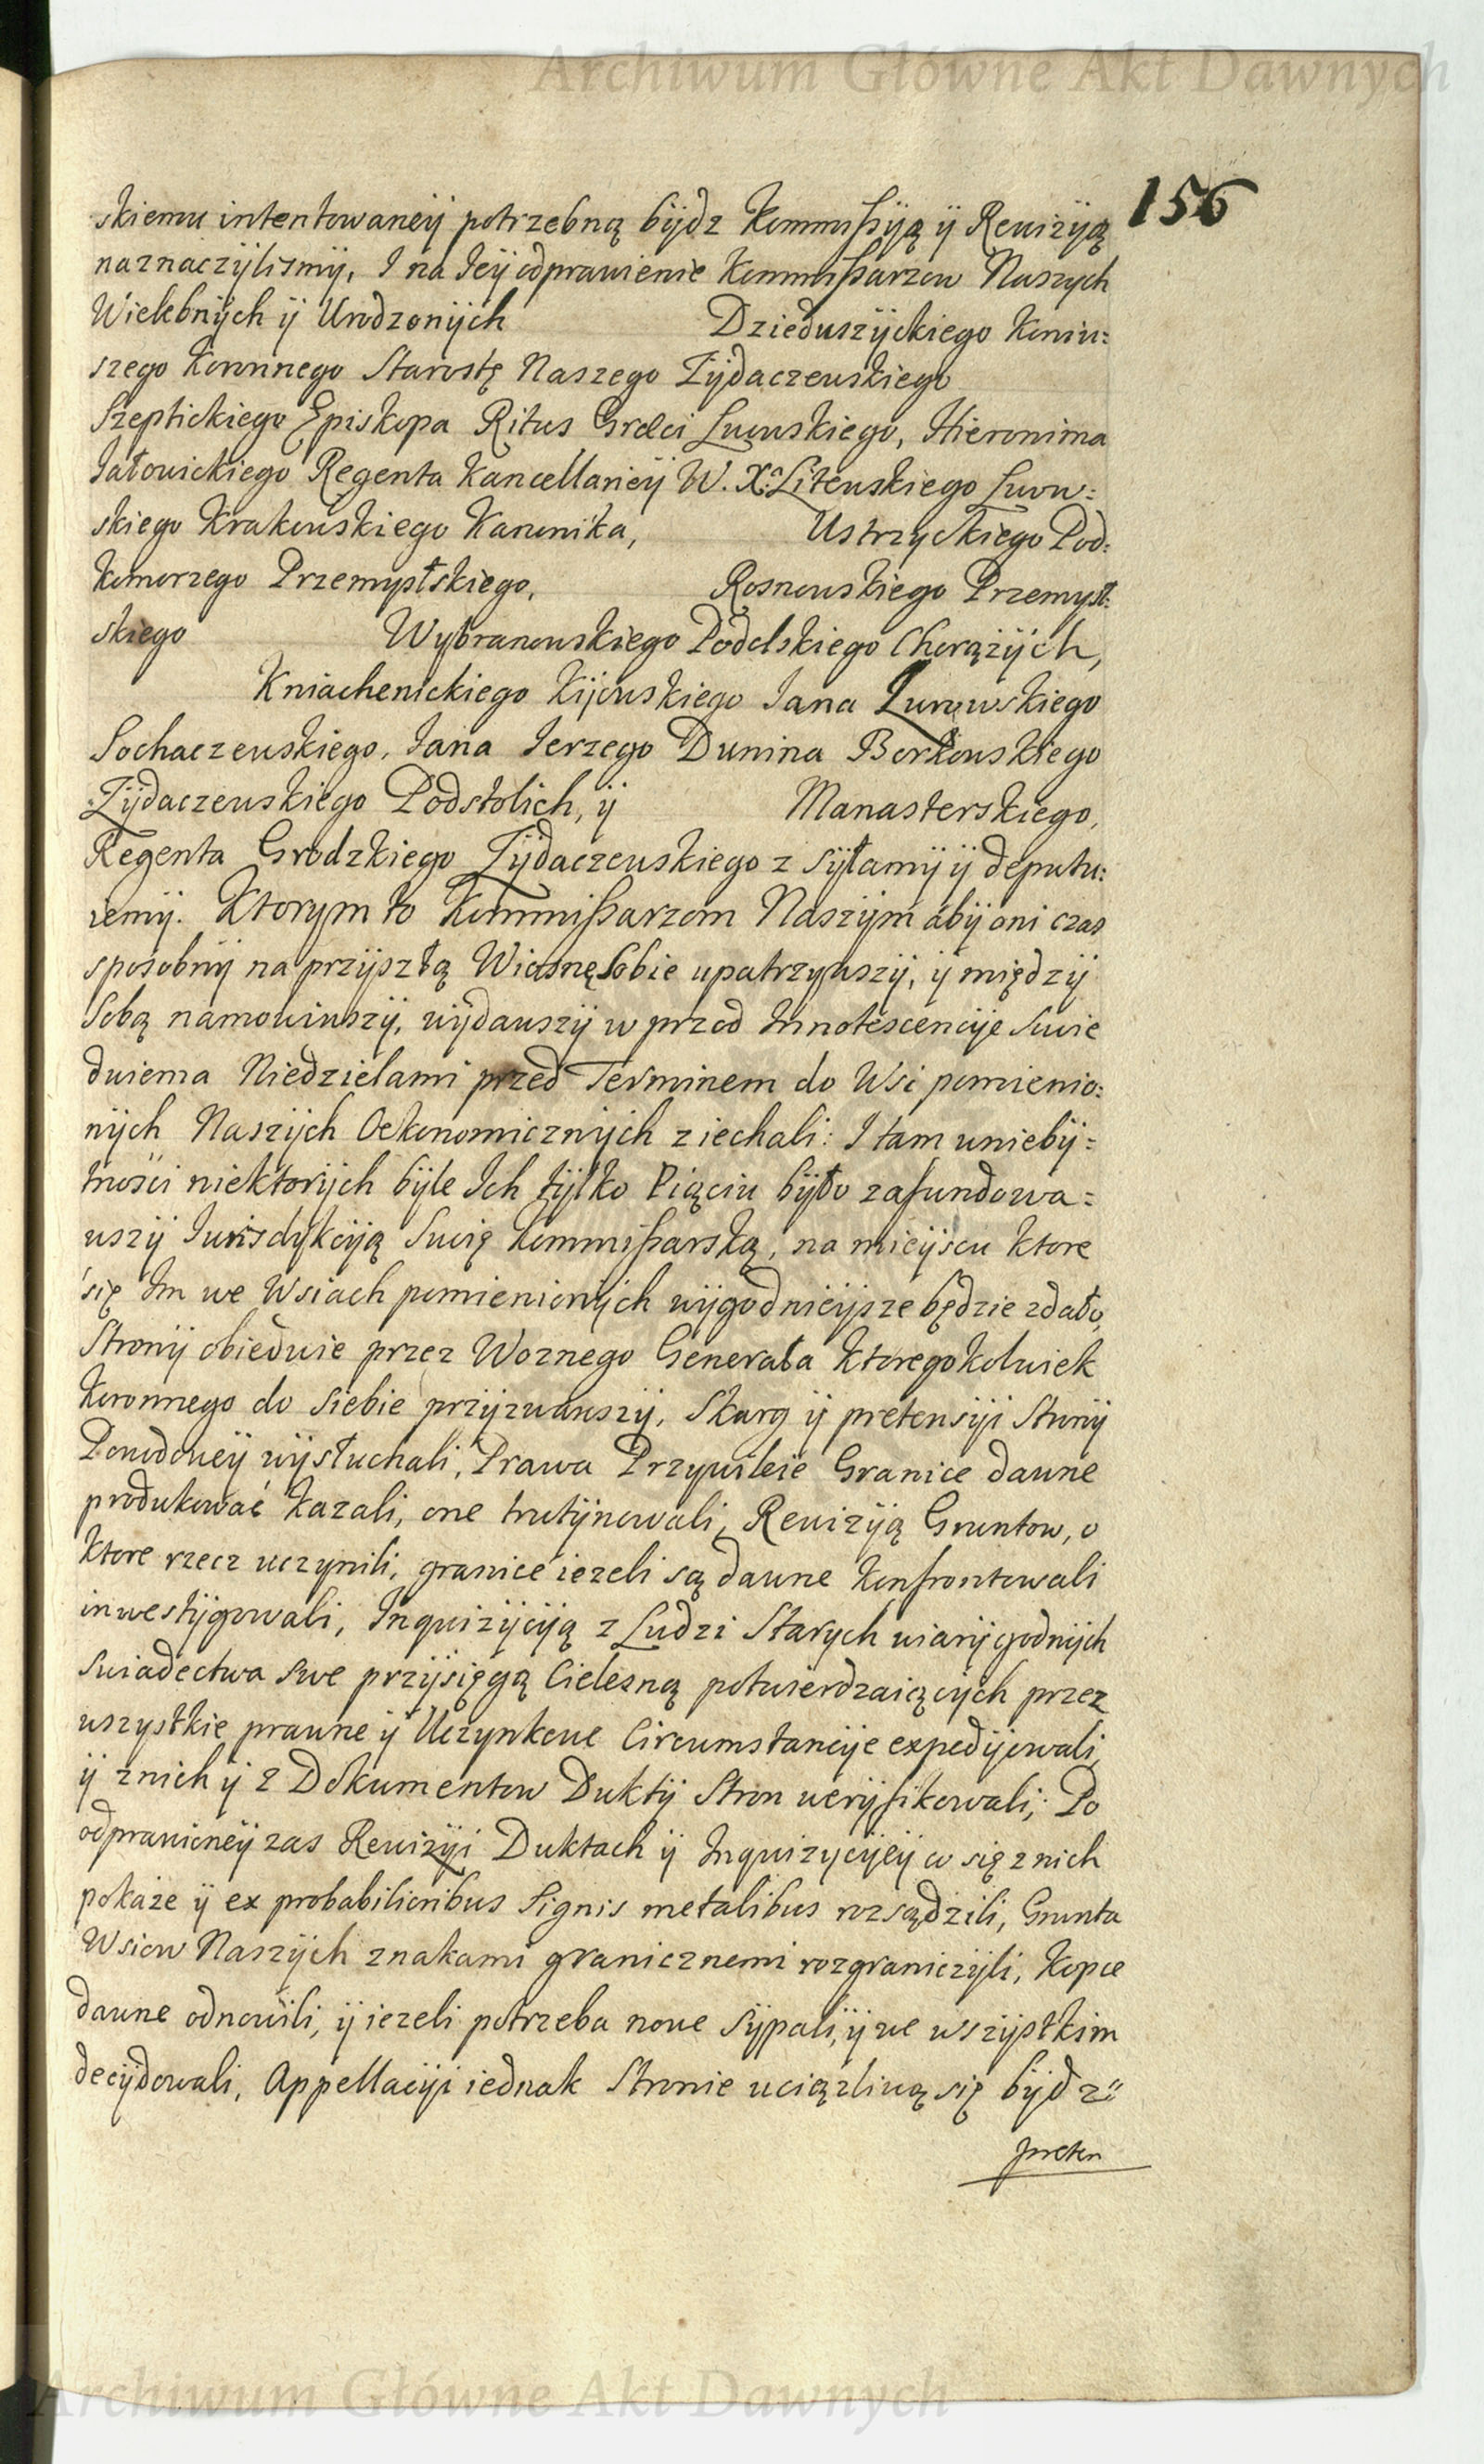 Archiwum Główne Akt Dawnych
156
skiemu intentowaney potrzebną bydz Kommissyą y Rewizyą
naznaczylismy, I na Iey odprawienie Kommissarzow Naszych
Wielebnych y Urodzonych Dzieduszyckiego Koniu:
szego Koronnego Starostę Naszego Zydaczewskiego
Szeptickiego Episkopa Ritus Graeci Lwowskiego, Hieronima
Iałowickiego Regenta Kancellariey W. X. Litewskiego Lwow:
skiego Krakowskiego Kanonika, Ustrzyckiego Pod:
komorzego Przemyslskiego, Rosnowskiego Przemysl:
skiego Wybranowskiego Podolskiego Chorążych,
Kniachenickiego Kijowskiego Iana Zurowskiego
Sochaczewskiego, Iana Ierzego Dunina Borkowskiego
Zydaczewskiego Podstolich, y Manasterskiego,
Regenta Grodzkiego Zydaczewskiego z syłamy y deputu:
iemy. Ktorym to Kommissarzom Naszym aby oni czas
sposobny na przyszłą Wiosnę Sobie upatrzywszy, y między
Sobą namowiwszy, wydawszy w przod Innotescencye Swie
dwiema Niedzielami przed Terminem do Wsi pomienio:
nych Naszych Oekonomicznych ziechali: I tam w nieby=
tnosci niektorych byle Ich tylko Pięciu było zafundowa=
wszy Iurisdykcyą Swoię Kommissarską, na mieyscu ktore
się Im we Wsiach pomienionych wygodnieysze będzie zdało,
Strony obiedwie przez Woznego Generała ktoregokolwiek
Koronnego do siebie przyzwawszy, Skarg y pretensyi Strony
Powodowey wysłuchali, Prawa Przywileie Granice dawne
produkować kazali, one trutynowali, Rewizyą Gruntow, o
ktore rzecz uczynili, granice iezeli są dawne konfrontowali
inwestygowali, Inquizycyą z Ludzi Starych wiary godnych
swiadectwa swe przysięgą Cielesną potwierdzaiących przez
wszystkie prawne y Uczynkowe Circumstancye expedyowali,
y z nich y z Dokumentow Dukty Stron weryfikowali; Po
odprawioney zas Rewizyi Duktach y Inquizycyey co się z nich
pokaże y ex probabilioribus Signis metalibus rozsądzili, Grunta
Wsiow Naszych znakami granicznemi rozgraniczyli, Kopce
dawne odnowili, y iezeli potrzeba nowe Sypali, y we wszystkim
decydowali, Appellacyi iednak Stronie uciązliwą się bydz
preten
Archiwum Główne Akt Dawnych